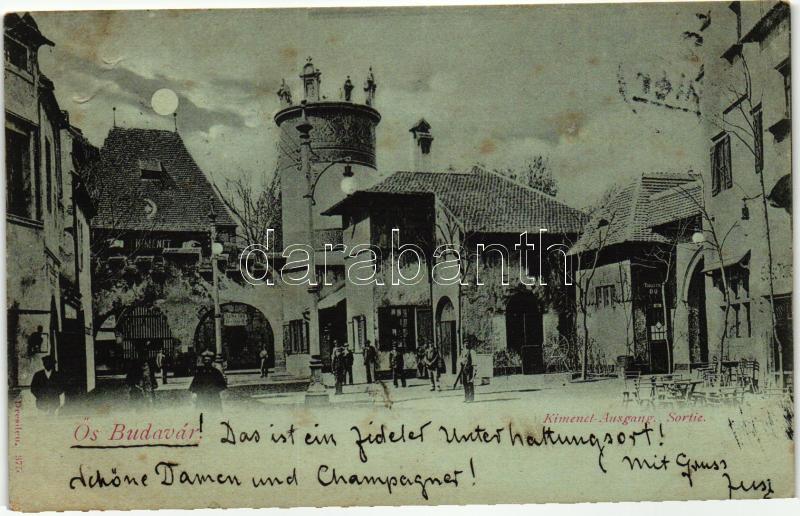 KIMENET
darabanth.com
Dresden.
Kimenet-Ausgang. Sortie.
Ös Budavár. ! Das ist ein fideler Unterhaltungsort!
Schöne Damen und Champagner! (Mit Gruss